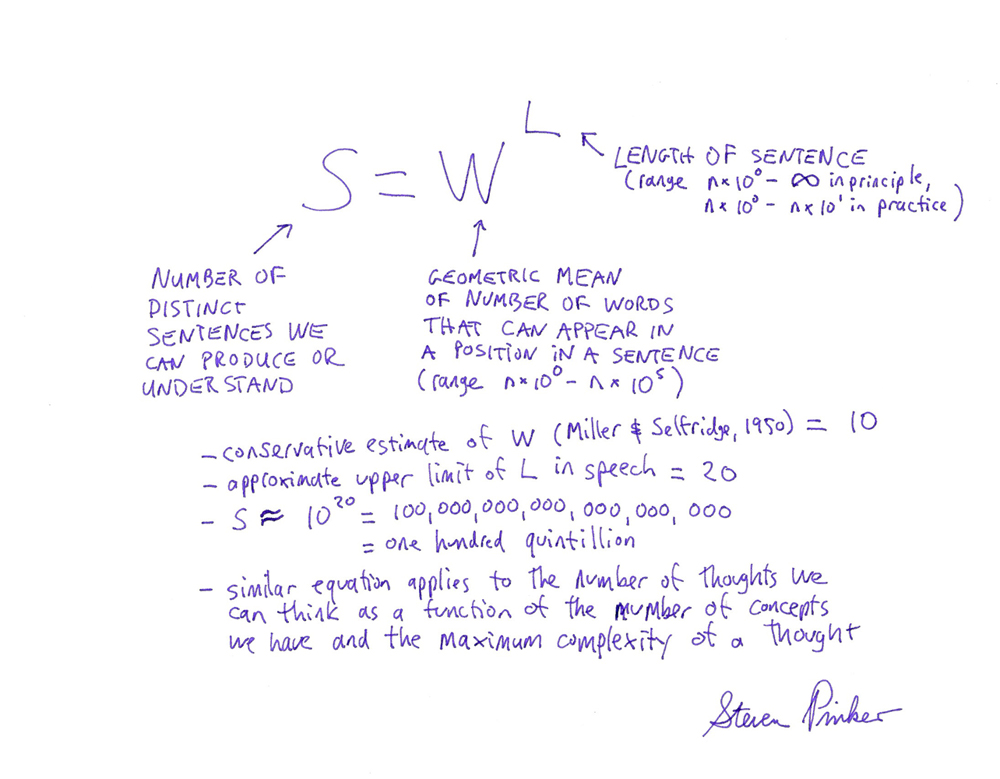 S = W^L
LENGTH OF SENTENCE
(range n×10⁰ – ∞ in principle,
n×10⁰ – n×10¹ in practice)
NUMBER OF
DISTINCT
SENTENCES WE
CAN PRODUCE OR
UNDERSTAND
GEOMETRIC MEAN
OF NUMBER OF WORDS
THAT CAN APPEAR IN
A POSITION IN A SENTENCE
(range n×10⁰ – n×10⁵)
– conservative estimate of W (Miller & Selfridge, 1950) = 10
– approximate upper limit of L in speech = 20
– S ≈ 10²⁰ = 100,000,000,000,000,000,000
= one hundred quintillion
– similar equation applies to the number of thoughts we
can think as a function of the number of concepts
we have and the maximum complexity of a thought
Steven Pinker